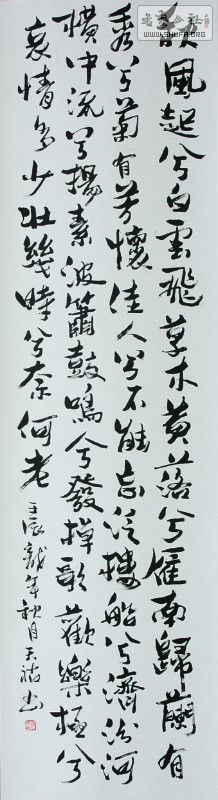 秋風起兮白雲飛草木黃落兮雁南歸蘭有
秀兮菊有芳懷佳人兮不能忘泛樓船兮濟汾河
橫中流兮揚素波簫鼓鳴兮發棹歌歡樂極兮
哀情多少壯幾時兮奈何老
壬辰龍年秋月天書
WWW.SHUFA.ORG